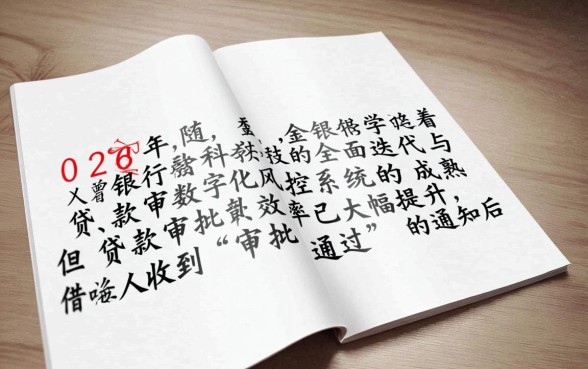 02 年,随, 、,金银 学 着
银行 科 技的全面迭代与
贷、款审数字化风控系统的 成熟
但 贷款审批 效率已大幅提升，
借 人收到“审批 通过” 的通知后